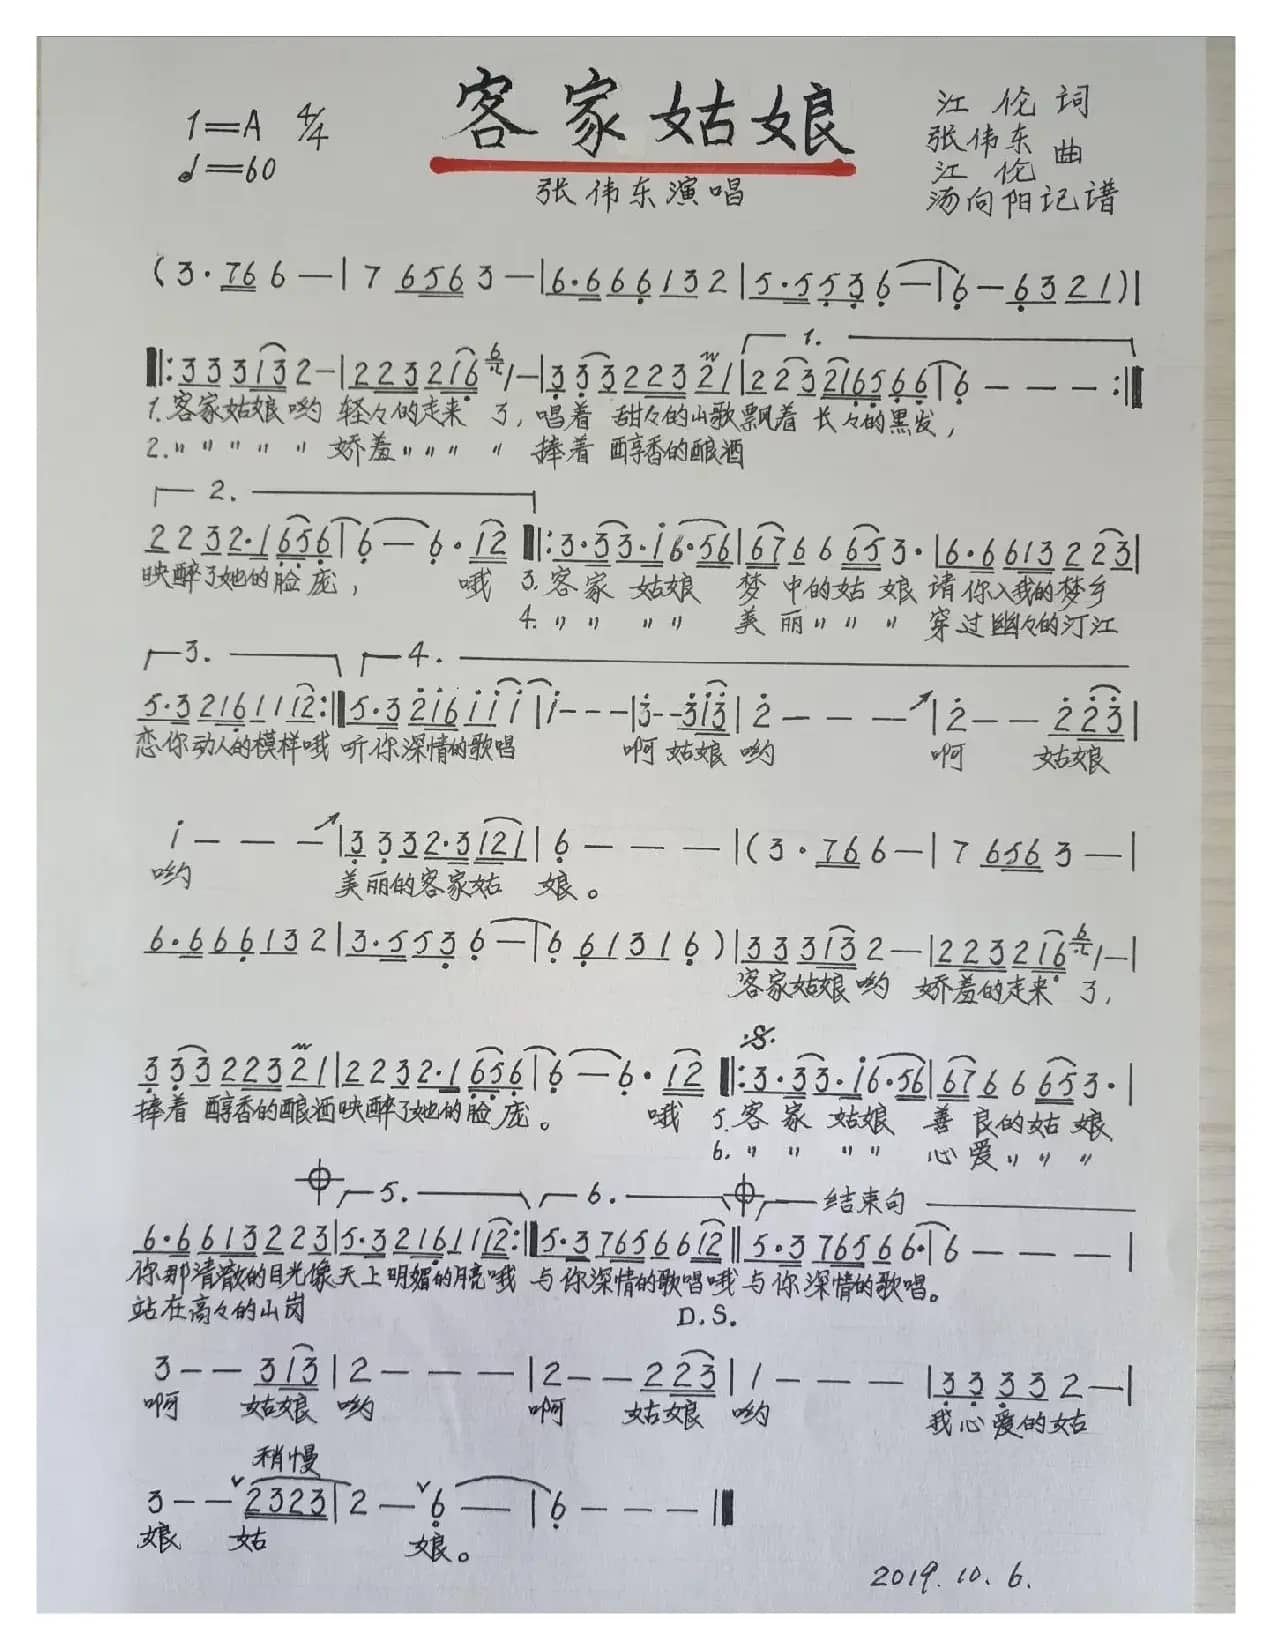 客家姑娘
1=A 4/4
♩=60
张伟东演唱
江伦词
张伟东
江伦 曲
汤向阳记谱
(3·766—|7 6563—|6·666132|5·5535 6—|6—6321)|
‖:333132—|2232161—|33322321|1. 2232165666|6———:‖
1.客家姑娘哟 轻々的走来 了,唱着 甜々的山歌飘着 长々的黑发,
2.〃〃〃〃〃 娇羞〃〃〃 〃 捧着 醇香的酿酒
2.
2232·1656|6—6·12‖:3·33·i6·56|6766653·|6·66132223|
映醉了她的脸庞, 哦 3.客家 姑娘 梦 中的姑 娘 请你入我的梦乡
4.〃〃 〃〃 美 丽〃〃 〃 穿过幽々的汀江
3. 4.
5·32161112:‖5·32i6iii|i———|3--3i3|2———|2——223|
恋你动人的模样哦 听你深情的歌唱 啊 姑娘 哟 啊 姑娘
i———|3332·3121|6———|(3·766—|7 6563—|
哟 美丽的客家姑 娘。
6·666132|3·5536—|6 61316)|333132—|2232161—|
客家姑娘 哟 娇羞的走来 了,
333223 21|2232·1656|6—6·12‖:3·33·i6·56|6766653·|
捧着 醇香的酿酒映醉了她的脸庞。 哦 5.客家 姑娘 善 良的姑 娘
6.〃 〃 〃〃 心爱〃〃 〃
5. 6. 结束句
6·66132223|5·32161112:‖5·37656612‖5·3765666·|6———|
你那清澈的目光像天上明媚的月亮哦 与你深情的歌唱哦与你深情的歌唱。
站在高々的山岗 D.S.
3——313|2———|2——223|1———|33332—|
啊 姑娘 哟 啊 姑娘 哟 我心爱的姑
稍慢
3——2323|2—6—|6———‖
娘 姑 娘。
2019.10.6.